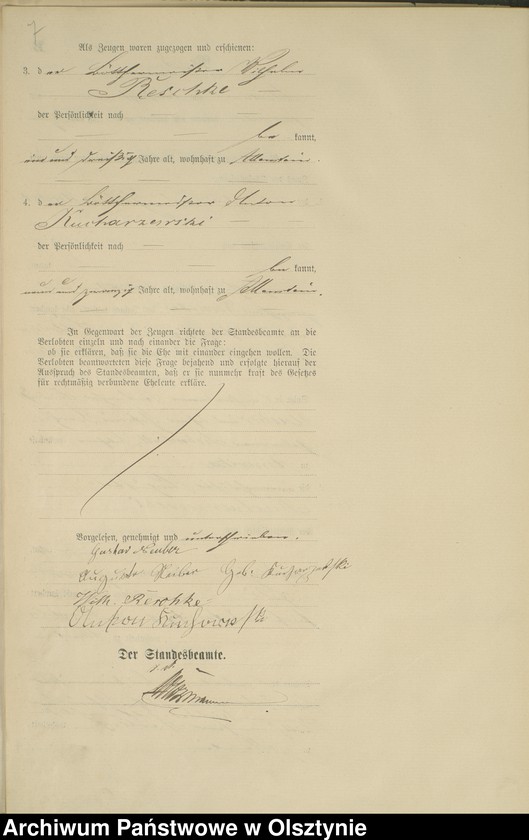 7
Als Zeugen waren zugezogen und erschienen:
3. der Böttchermeister Wilhelm
Reschke
der Persönlichkeit nach
be kannt,
ein und dreißig Jahre alt, wohnhaft zu Allenstein.
4. der Böttchermeister Anton
Kucharzewski
der Persönlichkeit nach
be kannt,
neun und zwanzig Jahre alt, wohnhaft zu Allenstein.
In Gegenwart der Zeugen richtete der Standesbeamte an die
Verlobten einzeln und nach einander die Frage:
ob sie erklären, daß sie die Ehe mit einander eingehen wollen. Die
Verlobten beantworteten diese Frage bejahend und erfolgte hierauf der
Ausspruch des Standesbeamten, daß er sie nunmehr kraft des Gesetzes
für rechtmäßig verbundene Eheleute erkläre.
Vorgelesen, genehmigt und unterschrieben.
Gustav
Auguste geb.
Wilh. Reschke
Der Standesbeamte.
Archiwum Państwowe w Olsztynie